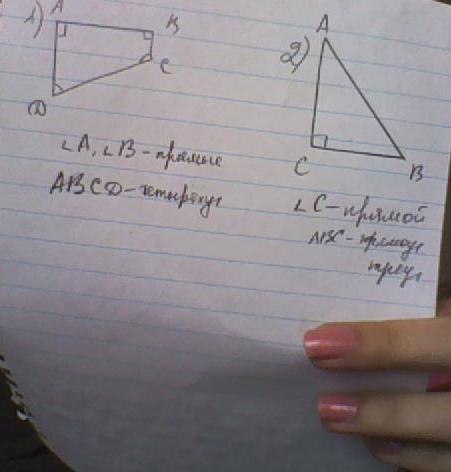 1) A B
C
D
∠A, ∠B - прямые
ABCD - четырёхуг
2) A
C B
∠C - прямой
ABC - прямоуг
треуг